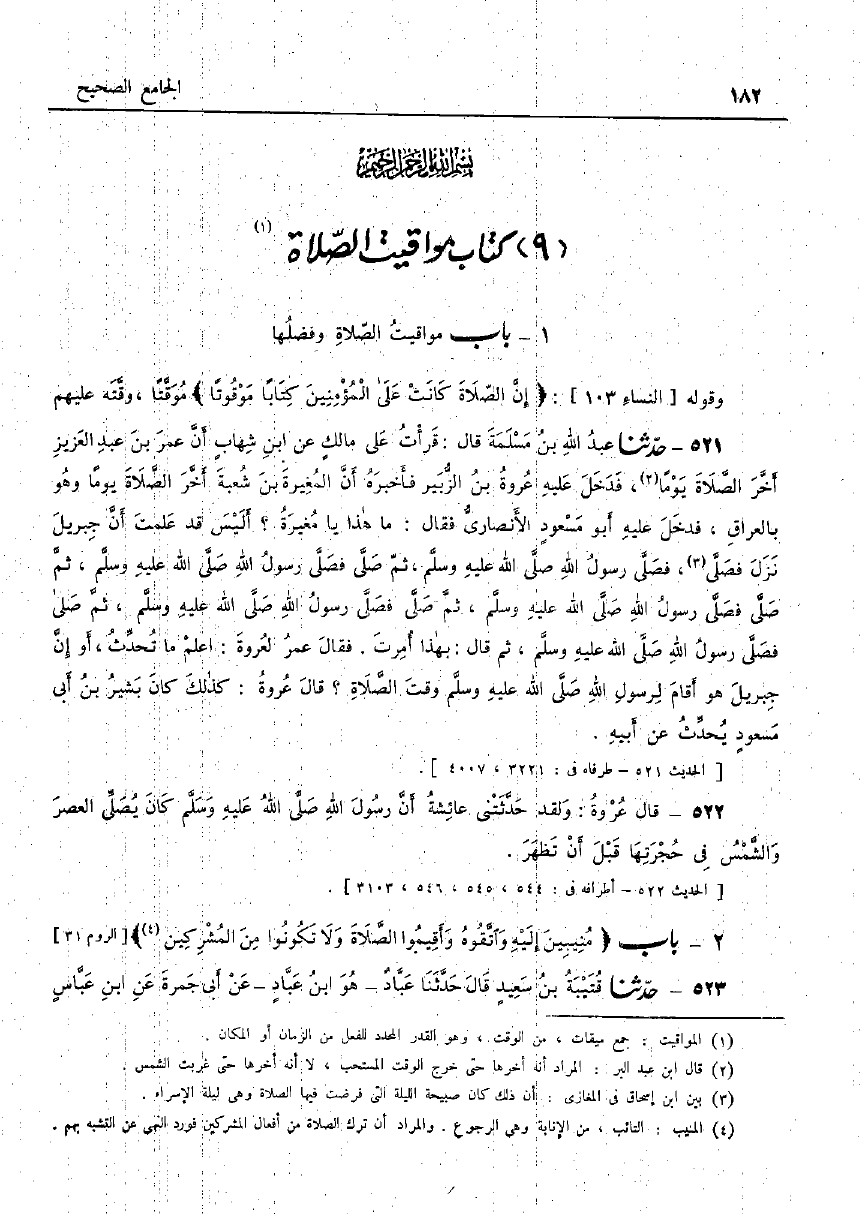 ١٨٢ الجامع الصحيح
بسم الله الرحمن الرحيم
(٩) كتاب مواقيت الصّلاة (١)
١ - باب مواقيتُ الصّلاةِ وفضلُها
وقوله [ النساء ١٠٣ ] : ﴿ إِنَّ الصَّلَاةَ كَانَتْ عَلَى الْمُؤْمِنِينَ كِتَابًا مَوْقُوتًا ﴾ مُوَقَّتًا ، وقَّتَه عليهم
٥٢١ - حدّثنا عبدُ اللهِ بنُ مَسْلَمَةَ قال : قَرأتُ عَلى مالكٍ عن ابنِ شِهابٍ أَنَّ عمرَ بنَ عبدِ العَزيزِ
أَخَّرَ الصَّلاةَ يَوْمًا(٢) ، فَدَخَلَ عَليهِ عُروةُ بنُ الزُّبَيرِ فأخبرَهُ أَنَّ المُغِيرةَ بنَ شُعبةَ أَخَّرَ الصَّلَاةَ يومًا وهُو
بالعراقِ ، فدخلَ عليهِ أبو مَسْعودٍ الأَنصارىُّ فقال : ما هٰذا يا مُغيرَةُ ؟ أَلَيْسَ قد عَلمتَ أَنَّ جِبريلَ
نَزَلَ فصَلَّى(٣) ، فصَلَّى رسولُ اللهِ صلَّى الله عليهِ وسلَّم ، ثمّ صَلَّى فصَلَّى رسولُ اللهِ صَلَّى الله عليهِ وسلَّم ، ثمَّ
صَلَّى فصَلَّى رسولُ اللهِ صَلَّى الله عليهِ وسلَّم ، ثمَّ صَلَّى فصَلَّى رسولُ اللهِ صَلَّى الله عليهِ وسلَّم ، ثمَّ صَلىٰ
فصَلَّى رسولُ اللهِ صَلَّى الله عليهِ وسلَّم ، ثم قال : بهٰذا أُمِرتَ . فقالَ عمرُ لعُروةَ : اعلمْ ما تُحدِّثُ ، أو إنَّ
جبريلَ هو أقامَ لِرسولِ اللهِ صَلَّى الله عليهِ وسلَّم وقتَ الصَّلاةِ ؟ قالَ عُروةُ : كذٰلِكَ كانَ بَشيرُ بنُ أبى
مَسعودٍ يُحدِّثُ عن أبيهِ .
[ الحديث ٥٢١ - طرفاه فى : ٣٢٢١ ، ٤٠٠٧ ] .
٥٢٢ - قال عُرْوةُ : وَلقد حَدَّثَتْنى عائِشةُ أَنَّ رسُولَ اللهِ صَلَّى اللهُ عَليهِ وَسَلَّم كَانَ يُصَلِّى العصرَ
وَالشَّمْسُ فى حُجْرَتِهَا قَبْلَ أَنْ تَظهَرَ .
[ الحديث ٥٢٢ - أطرافه فى : ٥٤٤ ، ٥٤٥ ، ٥٤٦ ، ٣١٠٣ ] .
٢ - باب ﴿ مُنِيبِينَ إِلَيْهِ وَاتَّقُوهُ وَأَقِيمُوا الصَّلَاةَ وَلَا تَكُونُوا مِنَ المُشْرِكِينَ (٤)﴾ [ الروم ٣١ ]
٥٢٣ - حدّثنا قُتَيْبَةُ بنُ سَعِيدٍ قَالَ حَدَّثَنَا عَبَّادٌ - هُوَ ابنُ عَبَّادٍ - عَنْ أبى جَمرةَ عَنِ ابنِ عَبَّاسٍ
(١) المواقيت : جمع ميقات ، من الوقت ، وهو القدر المحدد للفعل من الزمان أو المكان .
(٢) قال ابن عبد البر : المراد أنه أخرها حتى خرج الوقت المستحب ، لا أنه أخرها حتى غربت الشمس .
(٣) بين ابن إسحاق فى المغازى : أن ذلك كان صبيحة الليلة التى فرضت فيها الصلاة وهى ليلة الإسراء .
(٤) المنيب : التائب ، من الإنابة وهى الرجوع . والمراد أن ترك الصلاة من أفعال المشركين فورد النهى عن التشبه بهم .